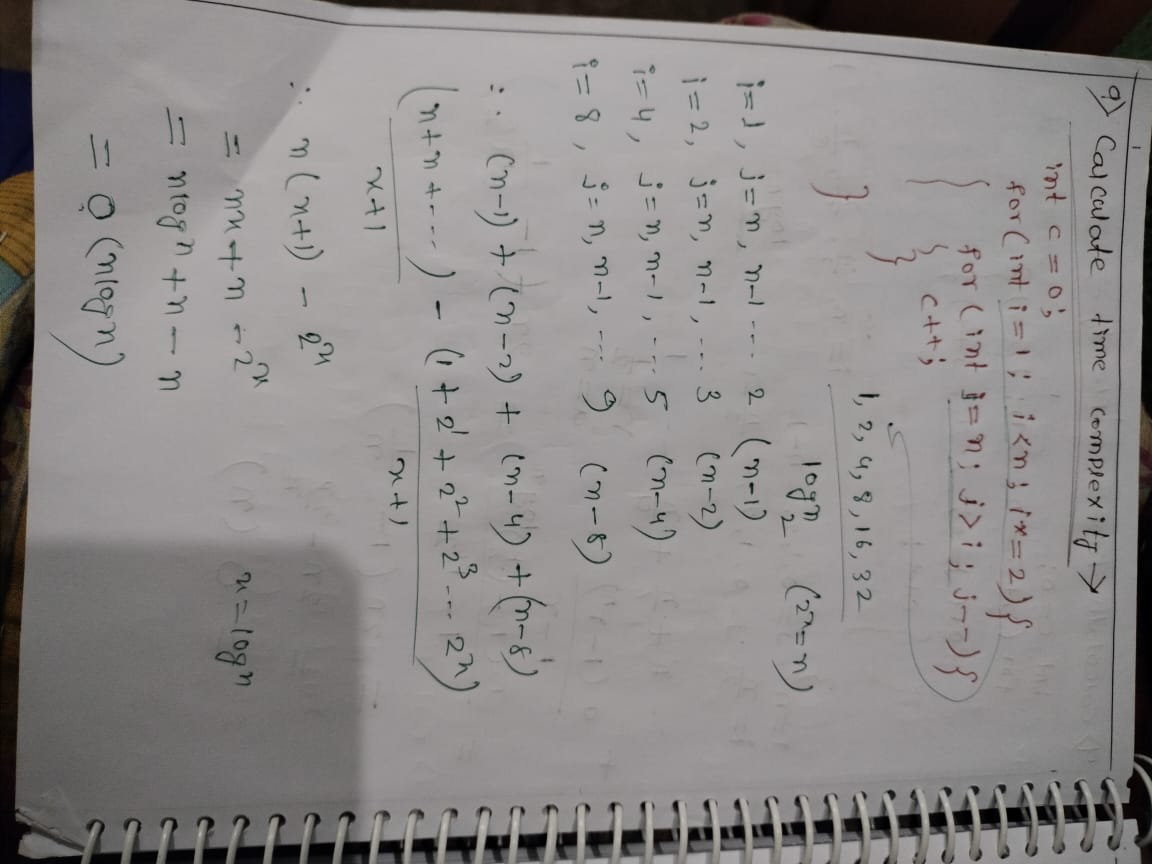 9) Calculate time complexity →
int c = 0;
for(int i = 1; i<n; i*=2){
for(int j = n; j>i; j--){
{ c++;
}
}
1, 2, 4, 8, 16, 32
log n 2 (2^x = n)
i=1, j=n, n-1 ... 2 (n-1)
i=2, j=n, n-1, ... 3 (n-2)
i=4, j=n, n-1, ... 5 (n-4)
i=8, j=n, n-1, ... 9 (n-8)
∴ (n-1) + (n-2) + (n-4) + (n-8)
(n+n+...) - (1 + 2^1 + 2^2 + 2^3 ... 2^x)
x+1 x+1
∴ n(x+1) - 2^x
= nx + n - 2^x x = log n
= nlogn + n - n
= O(nlogn)